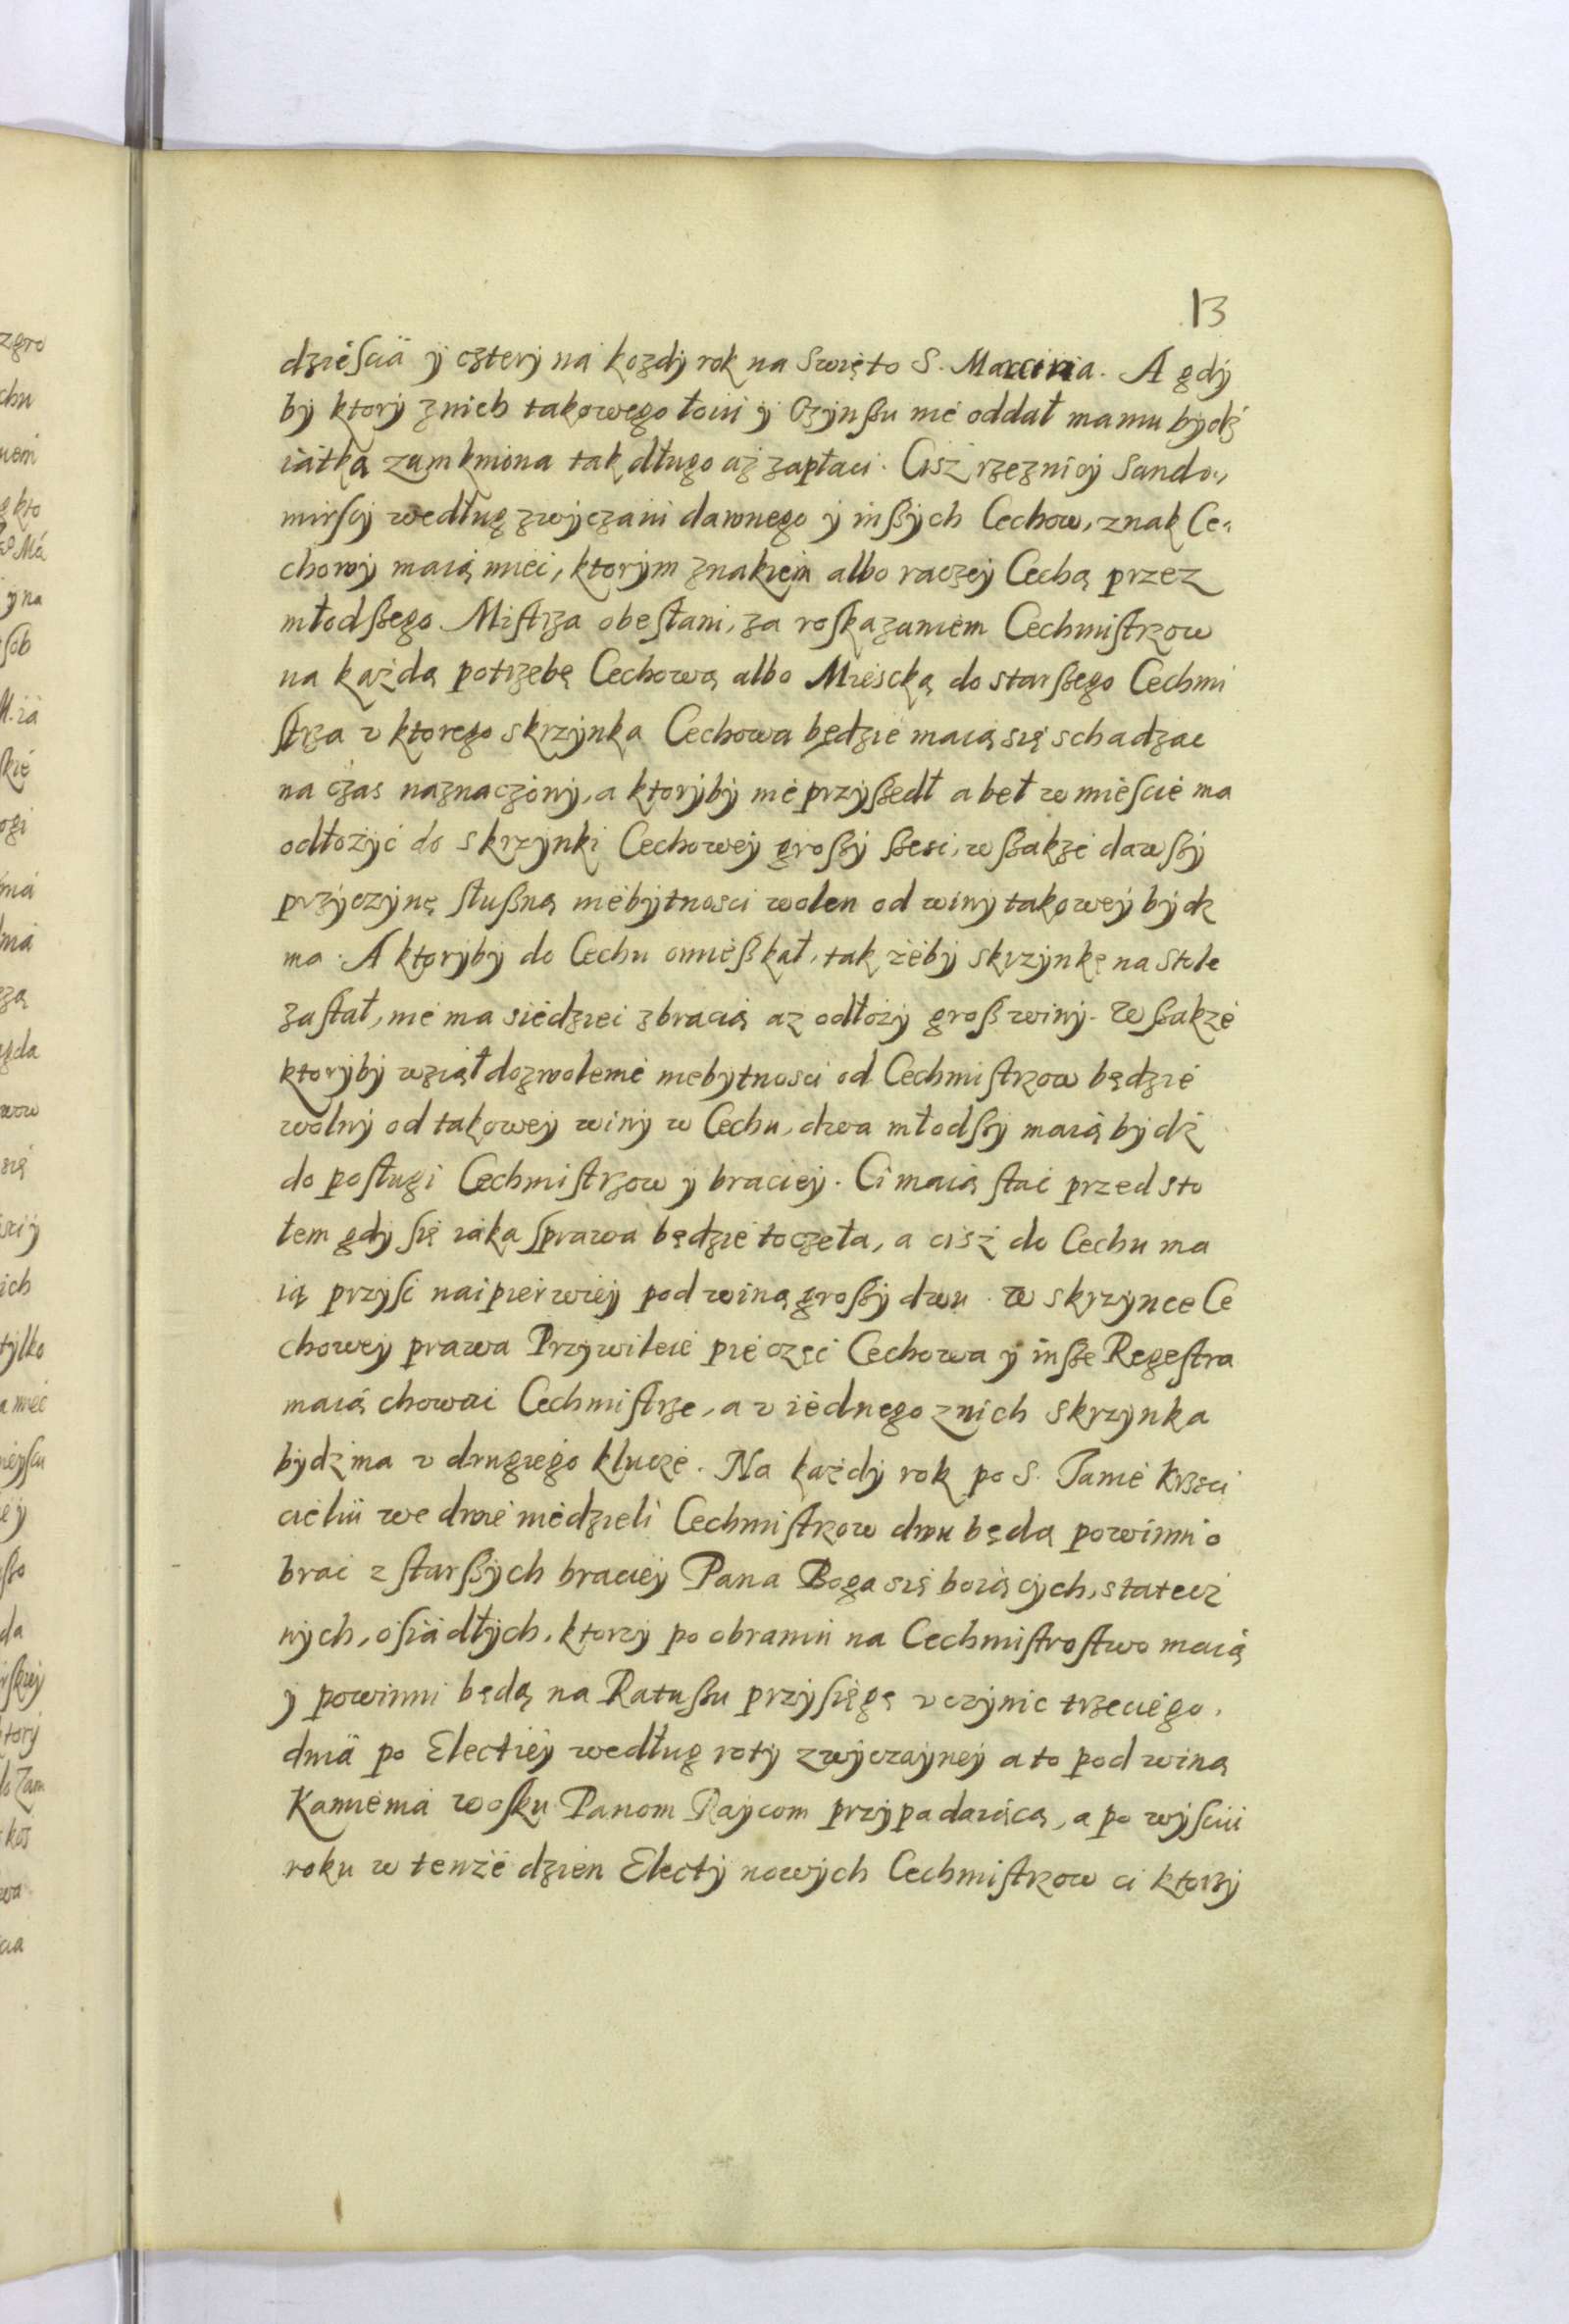 13
dzieścia y cztery na kozdy rok na Swięto S. Marcina. A gdy
by ktory znich takowego łoiu y Czynßu nie oddał mamu bydź
iatka zamkniona tak długo aż zapłaci. Cisz rzeznicy Sando„
mirscy według zwyczaiu dawnego y inßych Cechow, znak Ce„
chowy maią mieć, ktorym znakiem albo raczey Cechą przez
młodßego Mistrza obesłani, za roskazaniem Cechmistrzow
na każdą potrzebę Cechową albo Mieścką do starßego Cechmi
strza v ktorego skrzynka Cechowa będzie maią się schadzac
na czas naznaczony, a ktoryby nie przyßedł a beł w mieście ma
odłożyć do skrzynki Cechowey großy ßesc, wßakże dawßy
przyczynę słußną niebytnosci wolen od winy takowey bydz
ma. A ktoryby do Cechu omießkał, tak żeby skrzynkę na stole
zastał, nie ma siedzieć zbracią az odłoży groß winy. Wßakże
ktoryby wziął dozwolenie niebytnosci od Cechmistrzow będzie
wolny od takowey winy w Cechu, dwa młodßy maią bydź
do posługi Cechmistrzow y braciey. Ci maią stać przed sto
łem gdy się iaka sprawa będzie toczeła, a cisz do Cechu ma
ią przyść naipierwiey pod winą großy dwu. W skrzynce Ce
chowey prawa Przywileie pieczęć Cechowa y inße Regestra
maią chować Cechmistrze, a v iednego znich skrzynka
bydz ma v drugiego klucze. Na każdy rok po S. Janie Krzci
cielu we dwie niedzieli Cechmistrzow dwu będą powinni o
brać z starßych braciey Pana Boga się boiących, statecz
nych, osiadłych, ktorzy po obraniu na Cechmistrostwo maią
y powinni będą na Ratußu przysięgę vczynic trzeciego.
dnia po Electiey według roty zwyczayney a to pod winą
Kamienia wosku Panom Raycom przypadaiącą, a po wyściu
roku w tenże dzien Electy nowych Cechmistrzow ci ktorzy